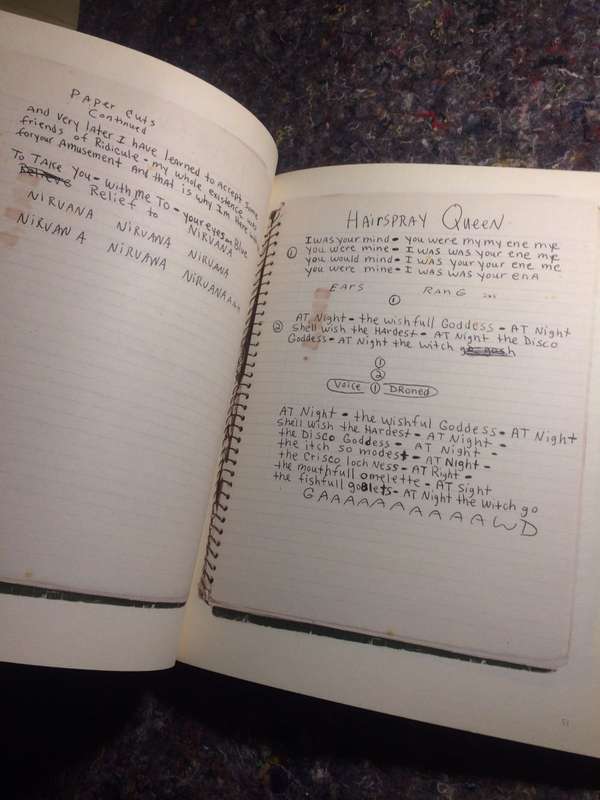 PAPER Cuts
Continued
and very later I have learned to Accept Some
friends of Ridicule - my whole existence was
for your Amusement And that is why I'm Here with
To TAKE You - with Me To - your eyes - Blue
Relieve Relief to
NIRVANA NIRVANA NIRVANA
NIRVANA NIRVANA NIRVANA
NIRVANAaaa
HAIRSPRAY QUEEN
I was your mind - you were my my ene mye
① you were mine - I was was your ene mye
you would mind - I was your your ene me
you were mine - I was was your enA
EARS RANG
①
AT Night - the wishfull Goddess - AT Night
② Shell wish the Hardest - AT Night the Disco
Goddess - AT Night the witch go gosh
①
②
Voice ① DRoned
AT Night - the wishful Goddess - AT Night
Shell wish the Hardest - AT Night -
the Disco Goddess - AT Night -
the itch so modest - AT Night -
the Crisco loch Ness - AT Right -
the mouthfull omelette - AT Sight
the fishfull goblets - AT Night the witch go
GAAAAAAAAAAWD
51